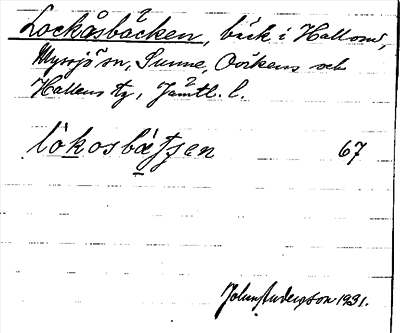 Lockåsbäcken, bäck i Hallom,
Myssjö sn, Sunne, Oviken och
Hallens tg, Jämtl. l.
lòkosbätʃen 67
John Anderzon 1931.